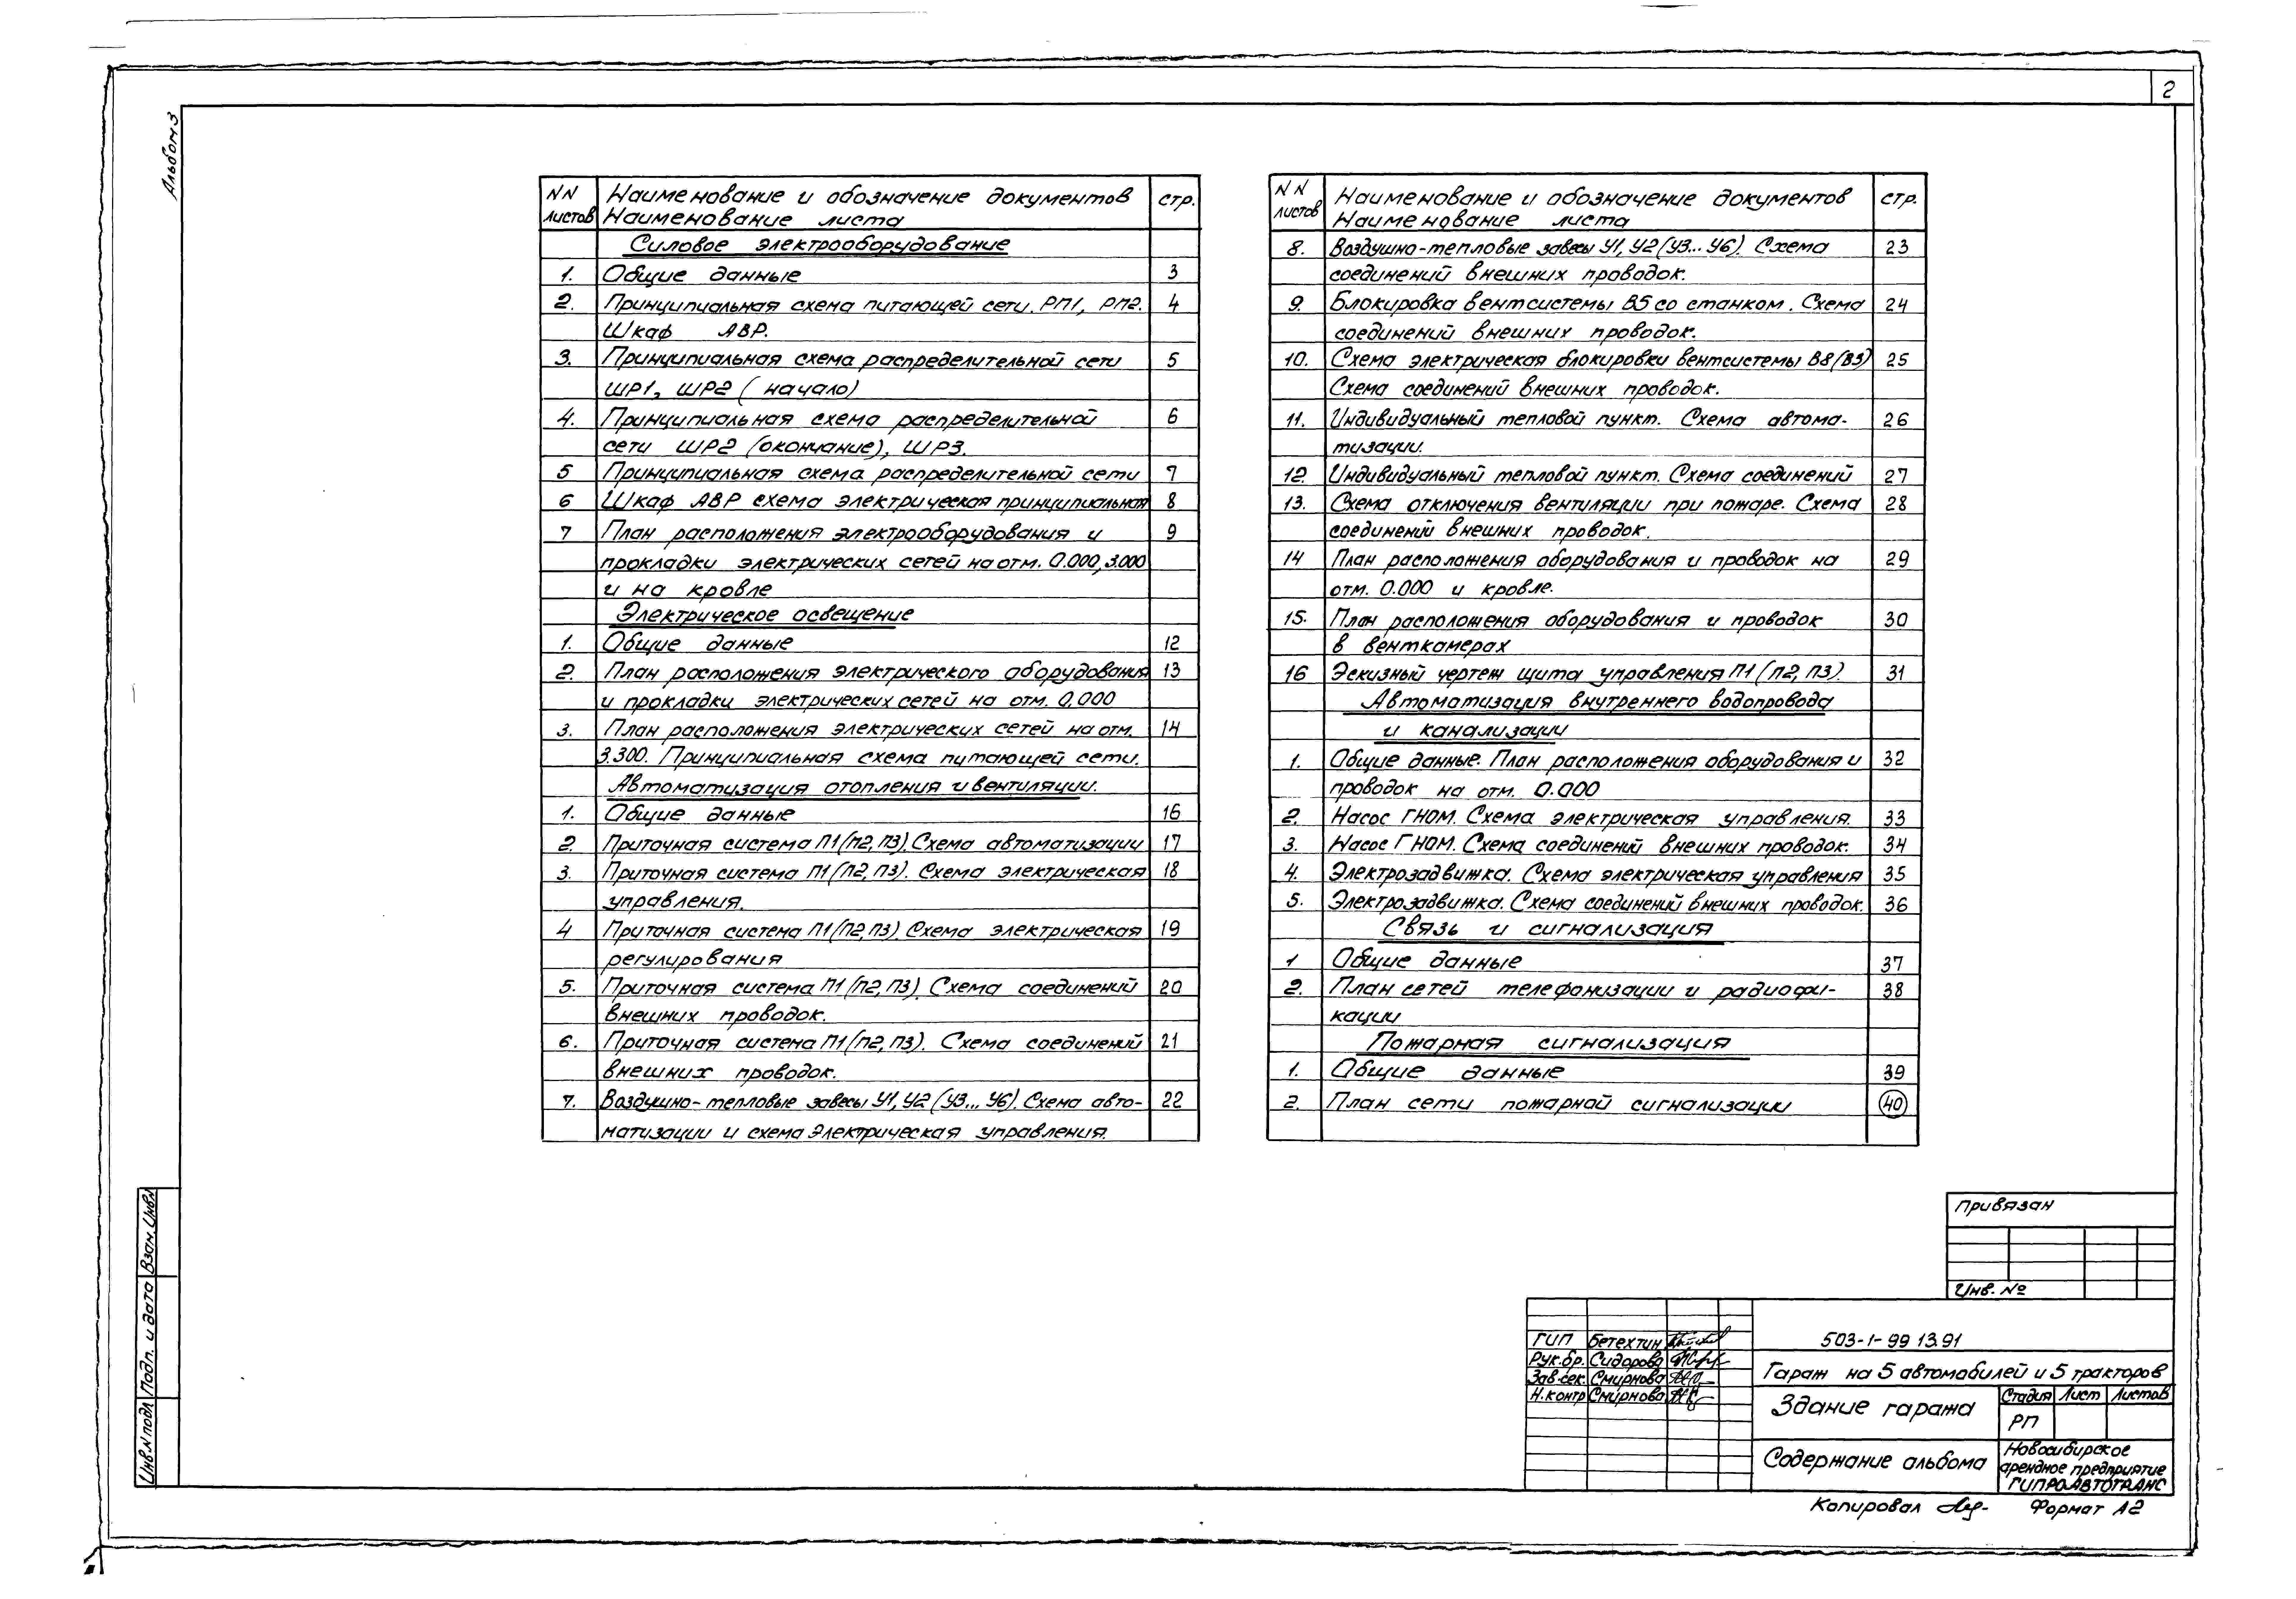 2
Альбом 3
NN листов Наименование и обозначение документов Наименование листа стр.
Силовое электрооборудование
1. Общие данные 3
2. Принципиальная схема питающей сети. РП1, РП2. 4
Шкаф АВР.
3. Принципиальная схема распределительной сети 5
ШР1, ШР2 (начало)
4. Принципиальная схема распределительной 6
сети ШР2 (окончание), ШР3.
5 Принципиальная схема распределительной сети 7
6 Шкаф АВР схема электрическая принципиальная 8
7 План расположения электрооборудования и 9
прокладки электрических сетей на отм. 0.000, 3.000
и на кровле
Электрическое освещение
1. Общие данные 12
2. План расположения электрического оборудования 13
и прокладки электрических сетей на отм. 0.000
3. План расположения электрических сетей на отм. 14
3.300. Принципиальная схема питающей сети.
Автоматизация отопления и вентиляции.
1. Общие данные 16
2. Приточная система П1(П2, П3). Схема автоматизации 17
3. Приточная система П1(П2, П3). Схема электрическая 18
управления.
4 Приточная система П1(П2, П3). Схема электрическая 19
регулирования
5. Приточная система П1(П2, П3). Схема соединений 20
внешних проводок.
6. Приточная система П1(П2, П3). Схема соединений 21
внешних проводок.
7. Воздушно-тепловые завесы У1, У2 (У3... У6). Схема авто- 22
матизации и схема электрическая управления.
NN листов Наименование и обозначение документов Наименование листа стр.
8. Воздушно-тепловые завесы У1, У2 (У3... У6). Схема 23
соединений внешних проводок.
9. Блокировка вентсистемы В5 со станком. Схема 24
соединений внешних проводок.
10. Схема электрическая блокировки вентсистемы В8(В3) 25
Схема соединений внешних проводок.
11. Индивидуальный тепловой пункт. Схема автома- 26
тизации.
12 Индивидуальный тепловой пункт. Схема соединений 27
13. Схема отключения вентиляции при пожаре. Схема 28
соединений внешних проводок.
14 План расположения оборудования и проводок на 29
отм. 0.000 и кровле.
15. План расположения оборудования и проводок 30
в венткамерах
16 Эскизный чертеж щита управления П1 (П2, П3). 31
Автоматизация внутреннего водопровода
и канализации
1. Общие данные. План расположения оборудования и 32
проводок на отм. 0.000
2. Насос ГНОМ. Схема электрическая управления. 33
3. Насос ГНОМ. Схема соединений внешних проводок. 34
4. Электрозадвижка. Схема электрическая управления 35
5. Электрозадвижка. Схема соединений внешних проводок. 36
Связь и сигнализация
1 Общие данные 37
2. План сетей телефонизации и радиофи- 38
кации
Пожарная сигнализация
1. Общие данные 39
2. План сети пожарной сигнализации 40
Привязан
Инв. №
ГИП Бетехтин
Рук.бр. Сидорова
Зав.сек. Смирнова
Н.контр Смирнова
503-1-99 13.91
Гараж на 5 автомобилей и 5 тракторов
Здание гаража
Стадия Лист Листов
РП
Содержание альбома
Новосибирское
арендное предприятие
ГИПРОАВТОТРАНС
Копировал
Формат А2
Инв.N подл Подп. и дата Взам. Инв.N